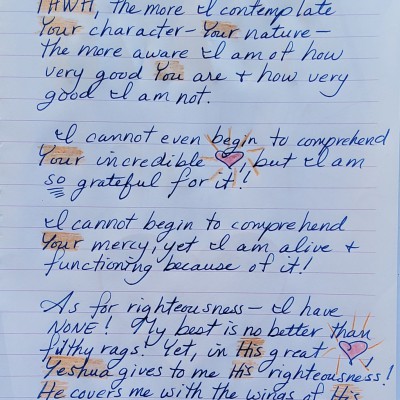 YHWH, the more I contemplate
Your character – Your nature –
the more aware I am of how
very good You are + how very
good I am not.
I cannot even begin to comprehend
Your incredible , but I am
so grateful for it!
I cannot begin to comprehend
Your mercy; yet I am alive +
functioning because of it!
As for righteousness – I have
NONE! My best is no better than
filthy rags. Yet, in His great ,
Yeshua gives to me His righteousness!
He covers me with the wings of His